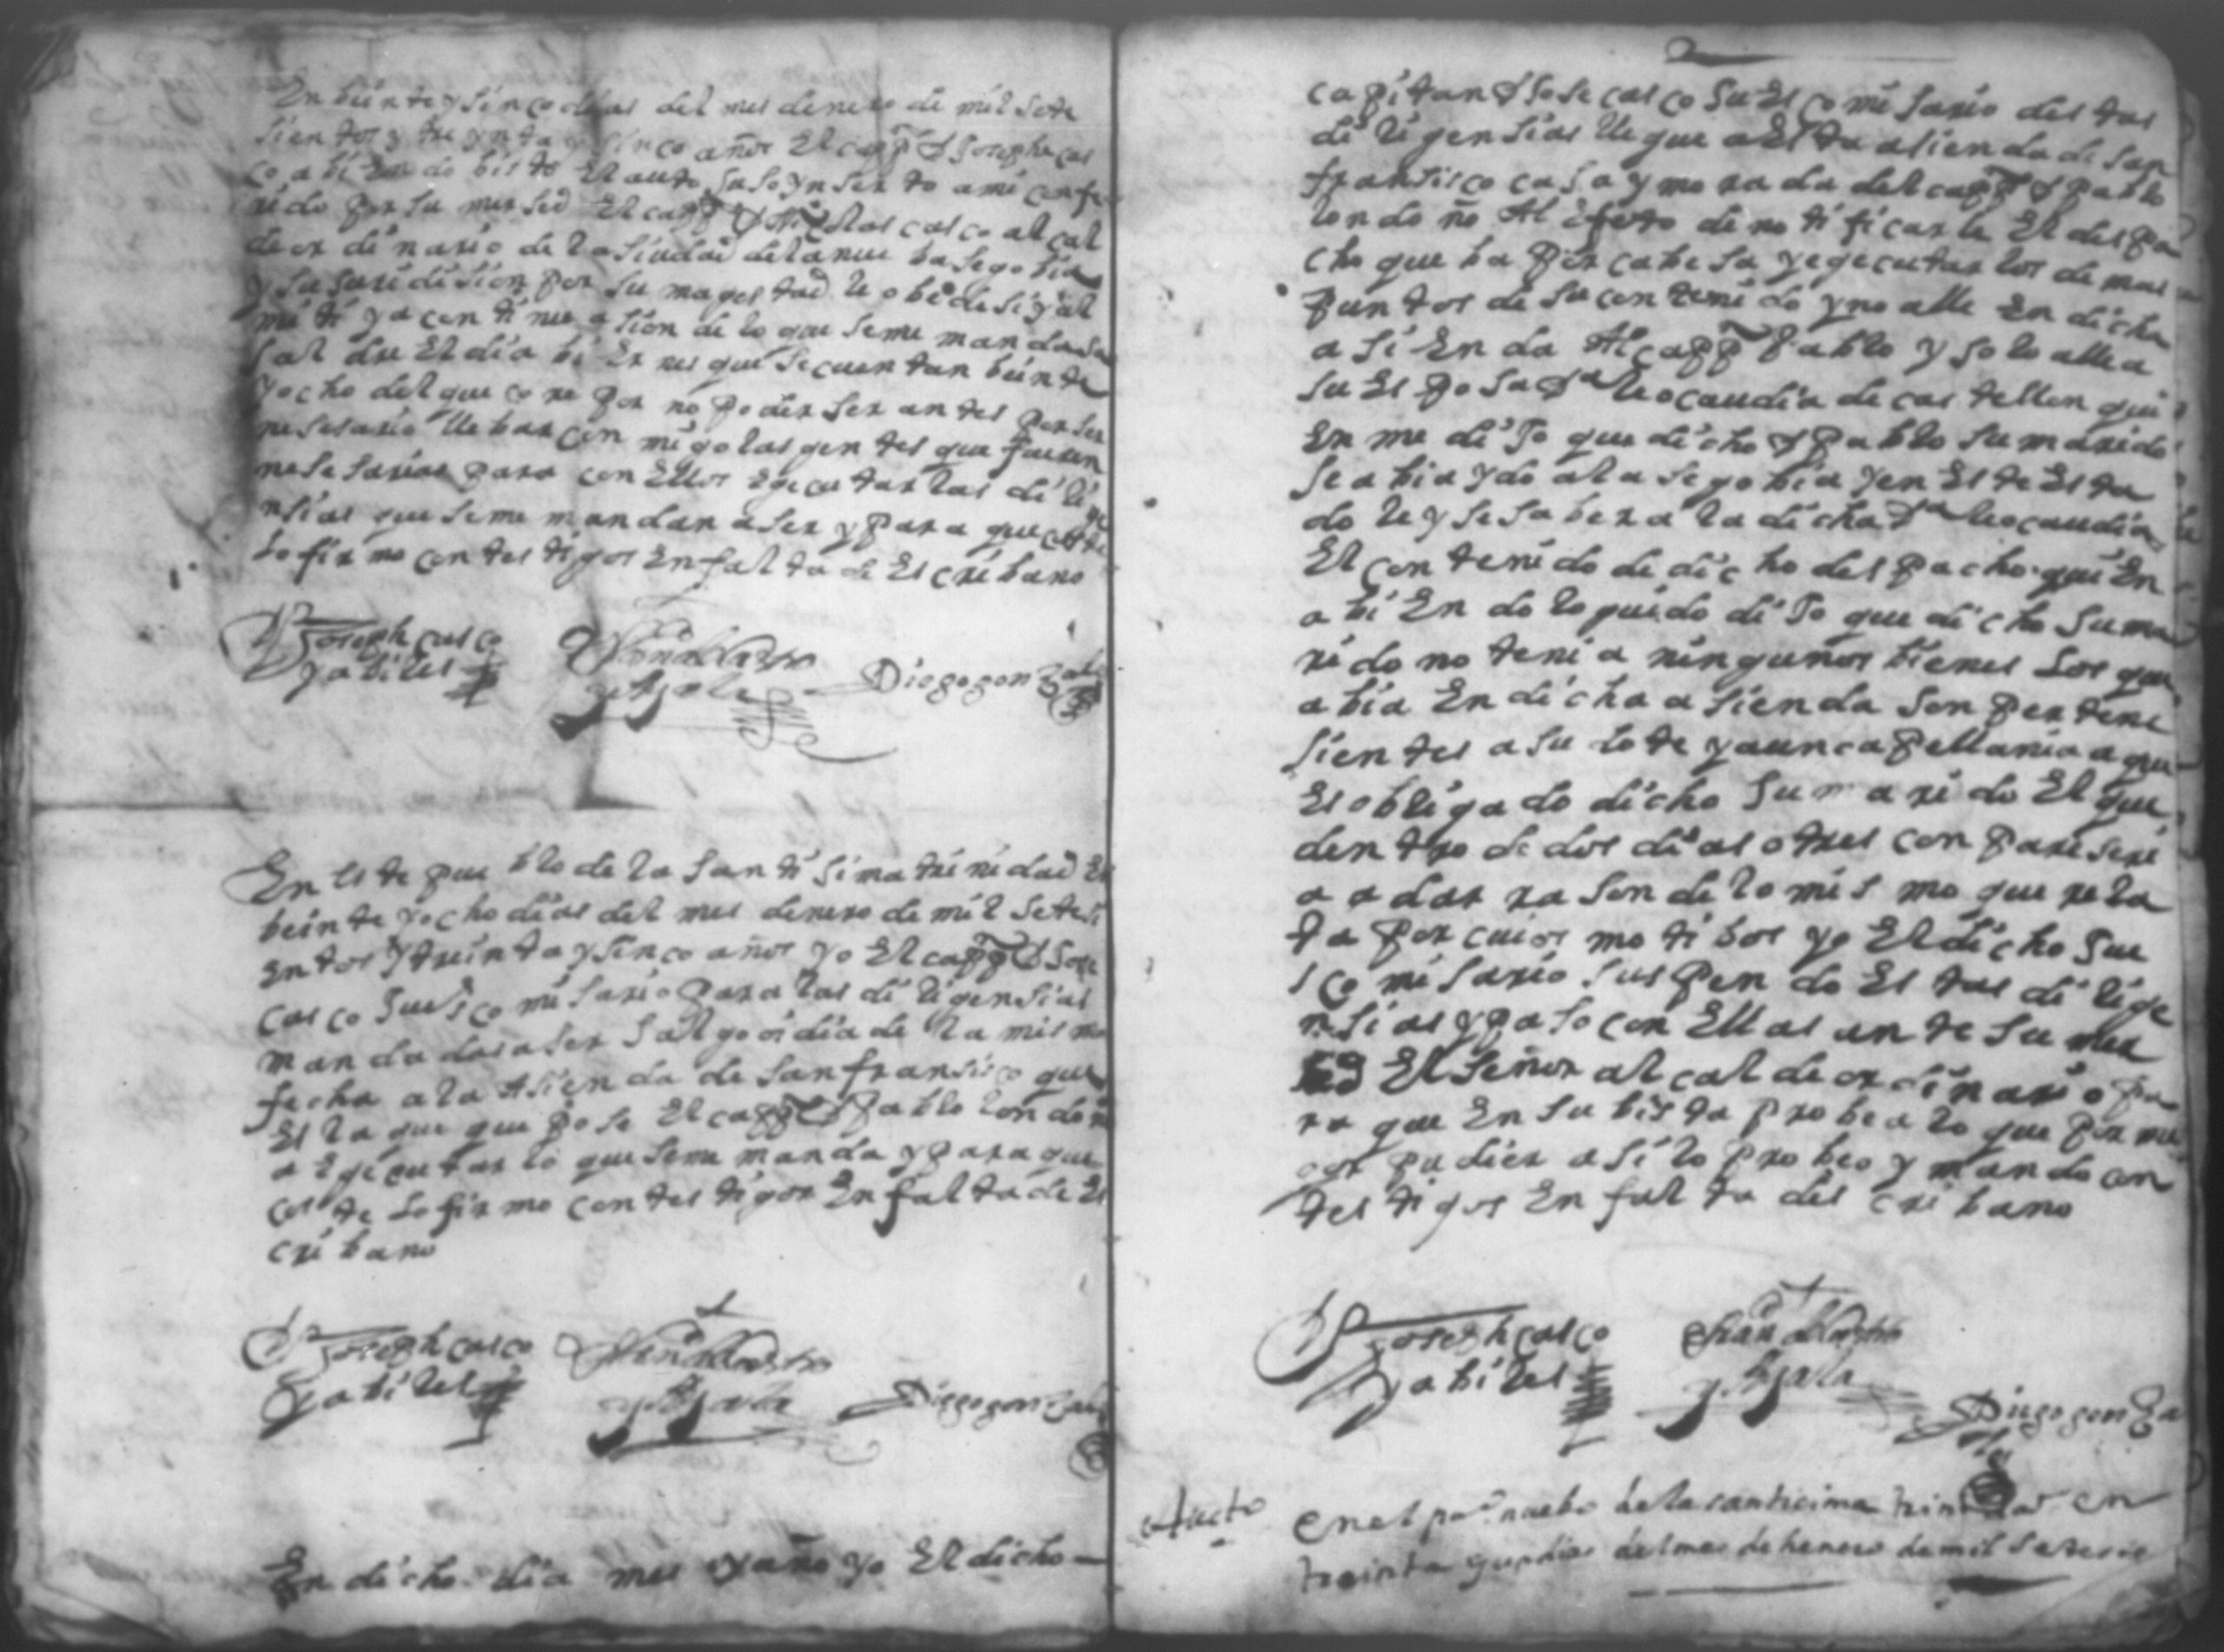 En beinte y sinco dias del mes denero de mil sete
sientos y treynta y sinco años El capp.n D Joseph cas
co abiEndo bisto El auto suso ynserto a mi confe
rido por su mersed El capp.n D Nicolas casco alcal
de ordinario de la siudad de la nueba segobia
y su juridision por su magestad le obedesi y al
mi ti y a continuasion de lo que seme manda sa
saldre El dia biErnes que se cuentan beinte
y ocho del que core por no poder ser antes por ser
nesesario llebar con migo las gentes que fueren
nesesarias para con Ellos Egecutar las dilige
nsias que seme mandan aser y para que coste
lo firmo con testigos En falta de Escribano
D Joseph casco
y abiles
Diego gonzales
En Este pueblo de la santisima trinidad En
beinte y ocho dias del mes denero de mil setesi
Entos y treinta y sinco años yo El capp.n D Jose
casco Jues comisario para las diligensias
mandadas aser salgo oi dia de la misma
fecha a la Asienda de san fransisco que
Es la que que pose El capp.n D Pablo londoño
a Egecutar lo que seme manda y para que
coste lo firmo con testigos En falta de Es
cribano
D Joseph casco
y abiles
Diego gonzales
En dicho dia mes y año yo El dicho
capitan D Jose casco JuEs comisario destas
diligensias llegue a Esta asienda de san
fransisco casa y morada del capp.n D pablo
londoño Al efeto de notificarle El despa
cho que ba por cabesa y egecutar los demas
puntos de su contenido y no alle En dicha
asiEnda Al capp.n Pablo y solo alle a
su Esposa D.a leocaudia de castellon qui
En me diJo que dicho D pablo su marido
se abia ydo a la segobia y en Este Esta
do ley y se saber a la dicha D.a leocaudia
El contenido de dicho despacho quiEn
abiEndolo ouido diJo que dicho su ma
rido no tenia ningunos bienes Los que
abia En dicha asienda son pertene
sientes a su dote y a un capellania a que
Es obligado dicho su marido El que
dentro de dos dias o tres con paresere
a a dar rason de lo mismo que rela
ta por cuios motibos yo El dicho Jue
s comisario suspendo Estas dilige
nsias y paso con Ellas ante su mer
sed El Señor alcalde ordinario pa
ra que En su bista probea lo que por me
gor pudier asi lo probeo y mando con
testigos En falta des cribano
D Joseph casco
y abiles
Diego gonza
les
Aucto
en el po nuebo de la santicima trinidad en
treinta y un dias del mes de henero de mil setesie